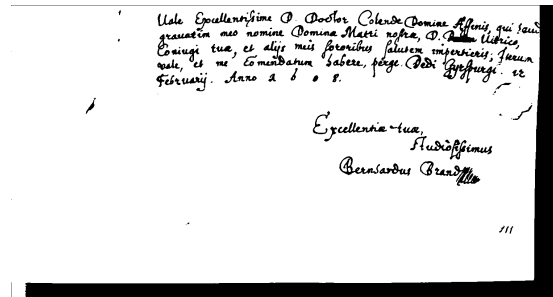 Vale Excellentissime D. Doctor Colende Domine Affinis, qui haud
gravatim meo nomine Dominæ Matri nostræ, D. Uldrico,
Coniugi tuæ, et alijs meis sororibus salutem impertieris; Iterum
vale, et me comendatum habere, perge. Dedi 12
Februarij. Anno 1608.
Excellentiæ tuæ,
Studiosissimus
Bernhardus Brand
111